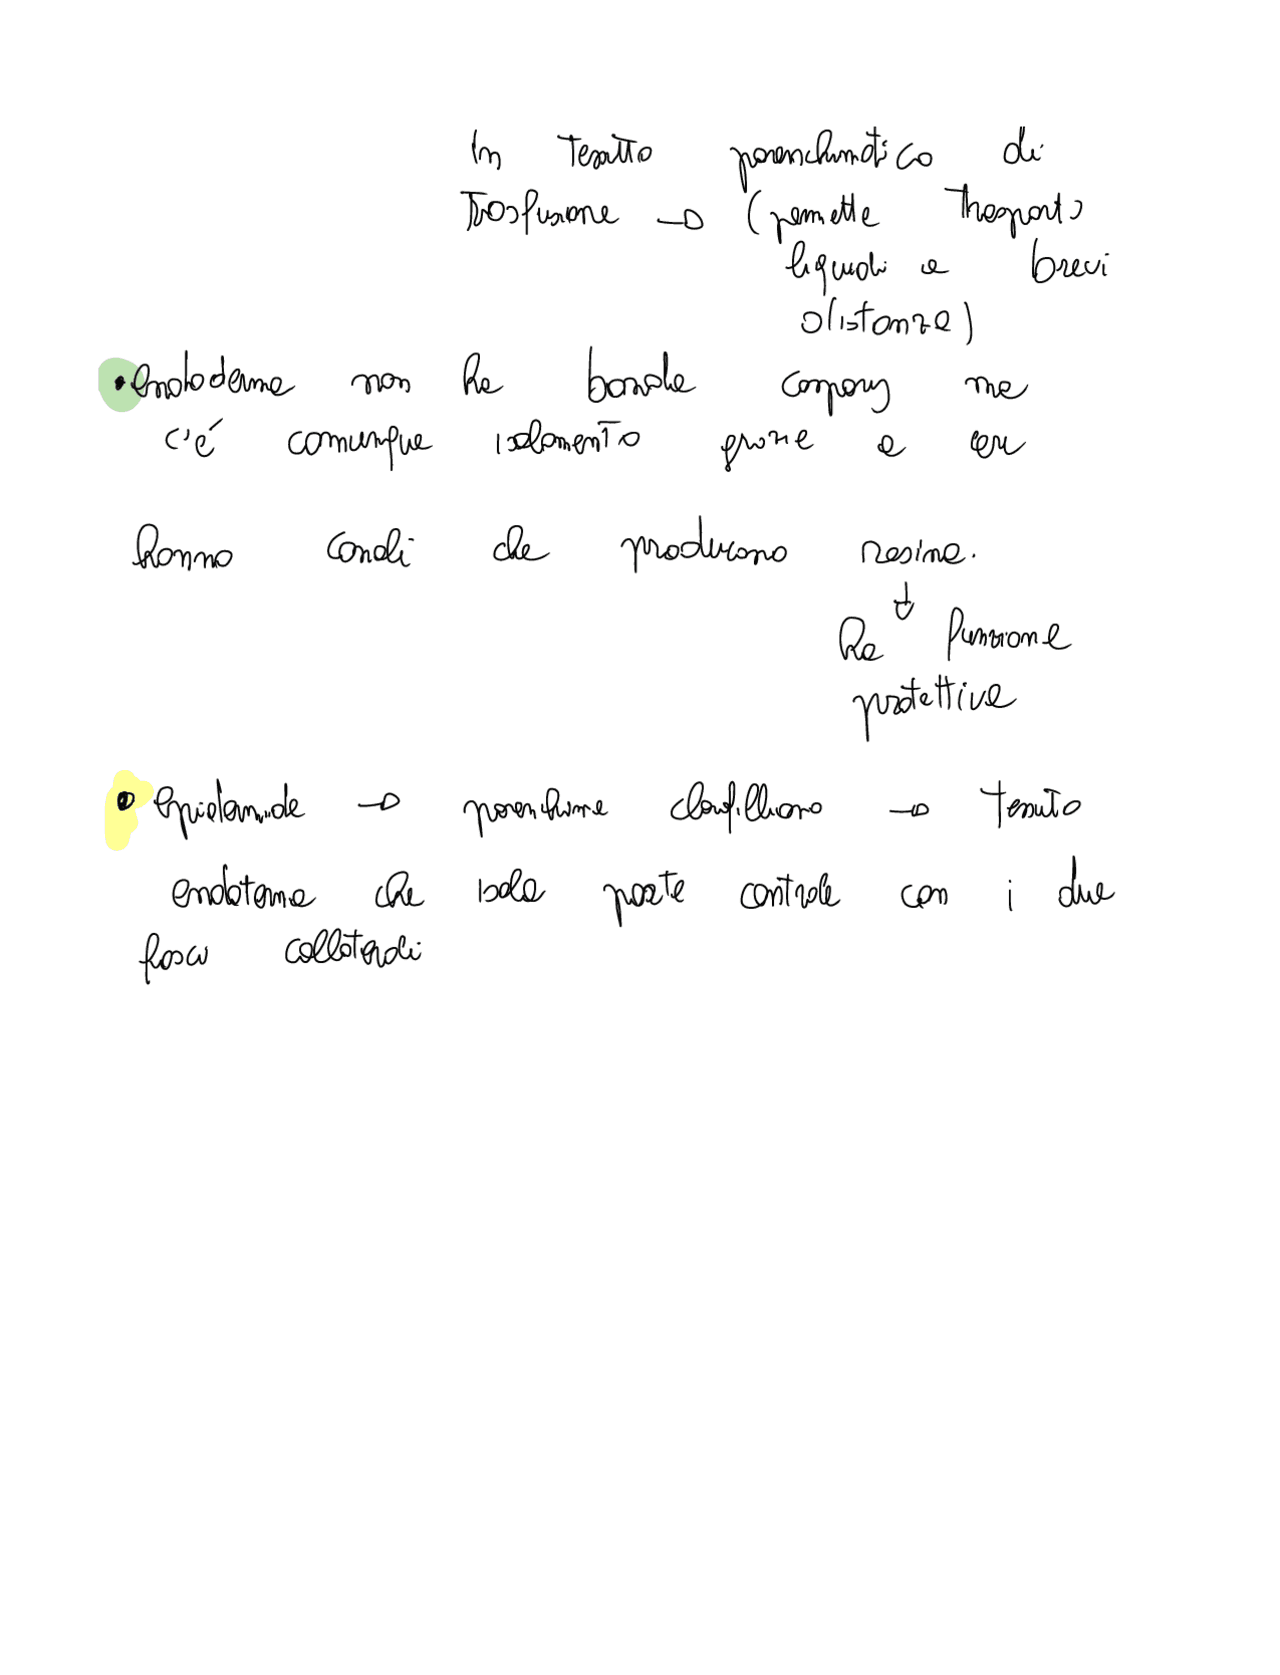 in tessuto parenchimatico di
trasfusione → (permette trasporto
liquidi a brevi
distanze)
• endoderma non ha bande caspary ma
c'é comunque isolamento grazie a
hanno canali che producono resina.
↓
ha funzione
protettiva
• epidermide → parenchima clorofilliano → tessuto
endoderma che isola parte centrale con i due
fasci collaterali